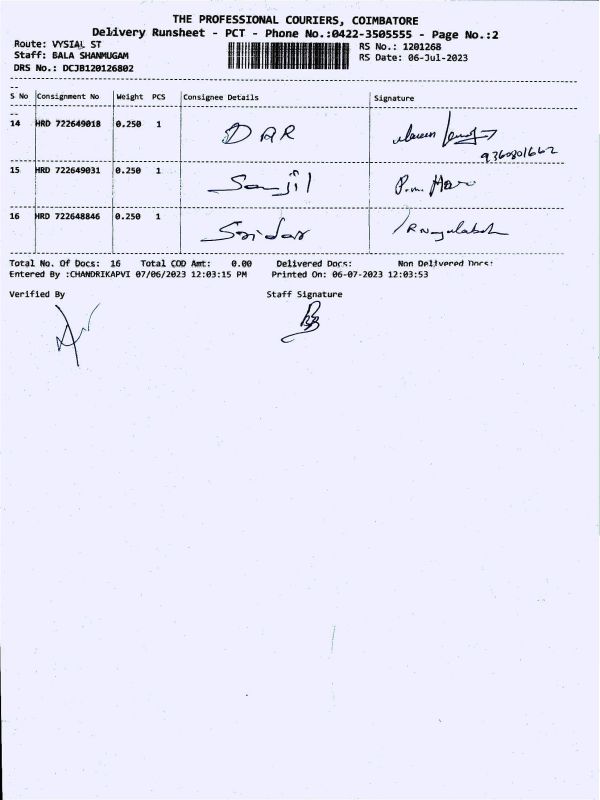 THE PROFESSIONAL COURIERS, COIMBATORE
Delivery Runsheet - PCT - Phone No.:0422-3505555 - Page No.:2
Route: VYSIAL ST
Staff: BALA SHANMUGAM
DRS No.: DCJB120126802
RS No.: 1201268
RS Date: 06-Jul-2023
S No Consignment No Weight PCS Consignee Details Signature
14 HRD 722649018 0.250 1 DAR
9360801662
15 HRD 722649031 0.250 1 Sanjil P.m.
16 HRD 722648846 0.250 1 Sridar
Total No. Of Docs: 16 Total COD Amt: 0.00 Delivered Docs: Non Delivered Docs:
Entered By :CHANDRIKAPVI 07/06/2023 12:03:15 PM Printed On: 06-07-2023 12:03:53
Verified By Staff Signature